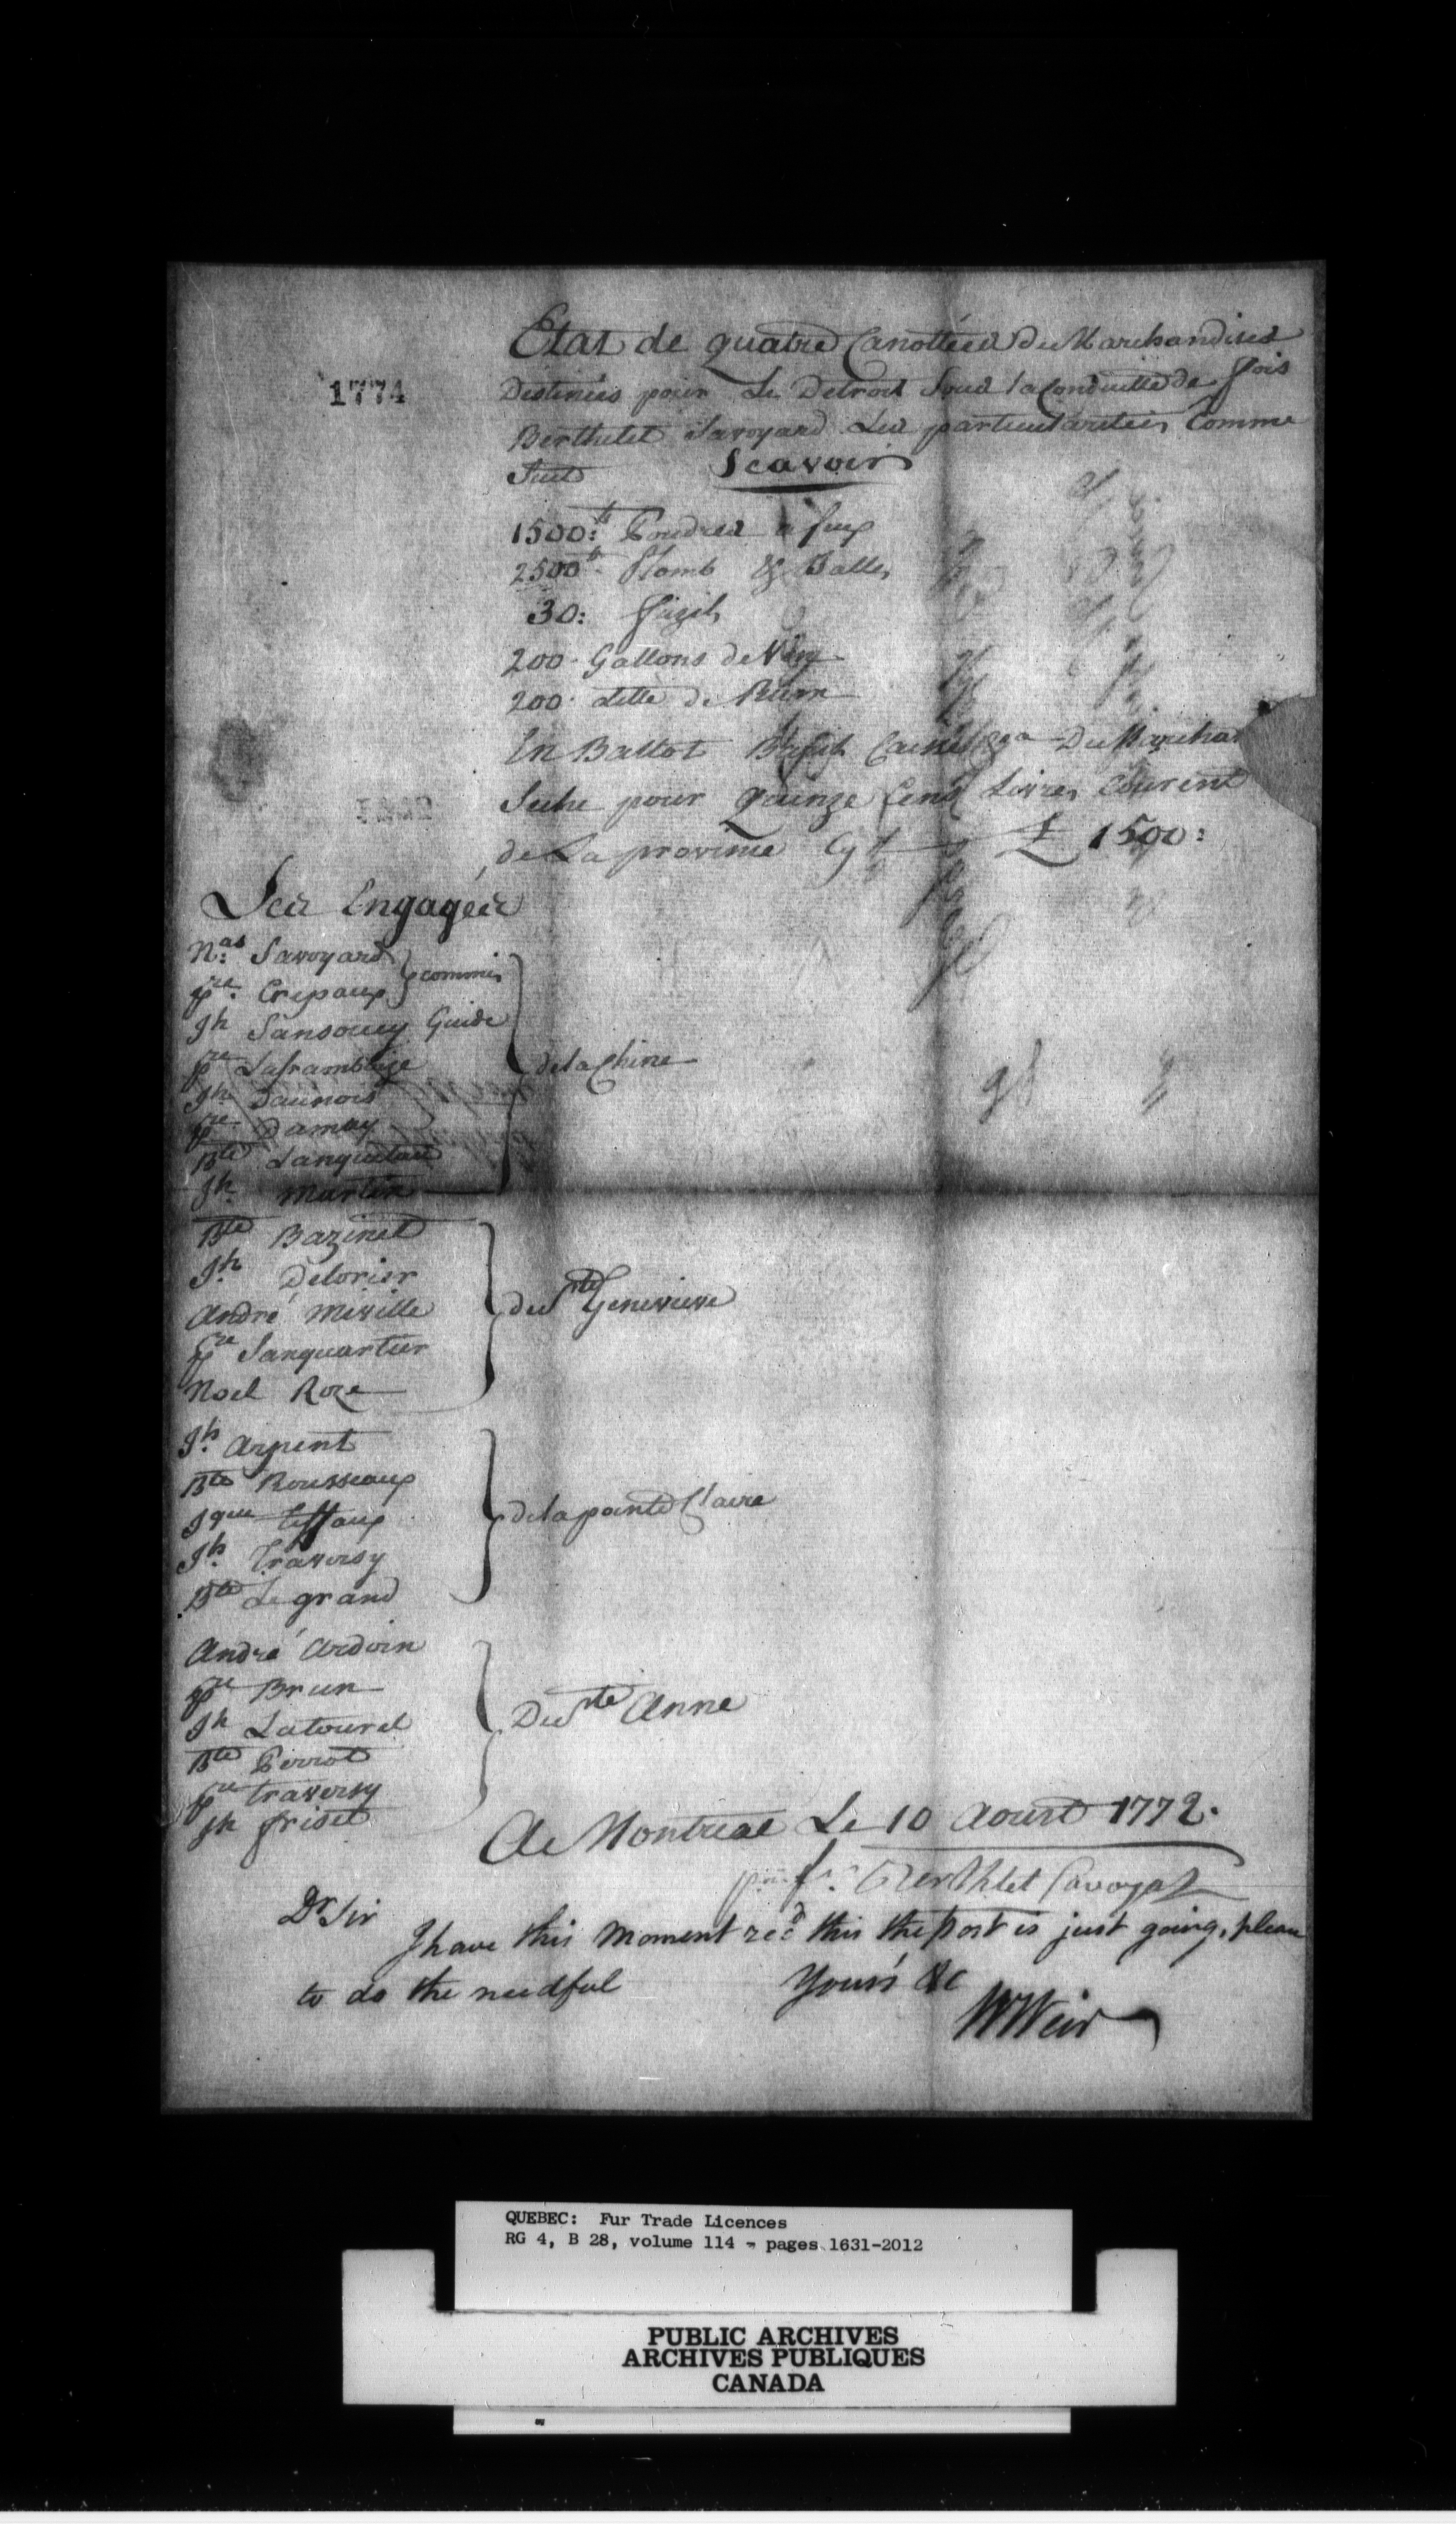 Etat de quatre Canottées de Marchandises
1774
Destinées pour Le Detroit Sous la Conduitte de ffois
Berthelet Savoyard Les particularitées Comme
Suit Scavoir
1500: lb Poudres a feux
2500 lb Plomb & Balles
30: fuzils
200 Gallons de Vin
200 ditto de Rum
En Ballot Caisse & ca De Marchan
Seche pour Quinze Cens Livres Courent
de La province Cy £ 1500:
Les Engagées
Nas. Savoyard
pre. Crepaux } commis
Jh Sansoucy Guide
pre Laframboise
Jh Daunois
pre Damay
Bte Languetau
Jh Martin } de la Chine
Bte Bazinet
Jh. Delorier
André Miville
pre Sanquartier
Noel Roze } de Ste Genevieve
Jh. Arpent
Bte Rousseaux
Jque
Jh. Traversy
Bte Legrand } de la pointe Claire
André Ardoin
pre Brun
Jh Latourel
Bte Perrot
pre traversy
Jh frisel } De Ste Anne
A Montreal Le 10 Aoust 1772.
fs. Berthlet Savoyar
Dr Sir
I have this Moment recd this the post is just going, please
to do the needful Yours &c
WWeir
QUEBEC: Fur Trade Licences
RG 4, B 28, volume 114 - pages 1631-2012
PUBLIC ARCHIVES
ARCHIVES PUBLIQUES
CANADA